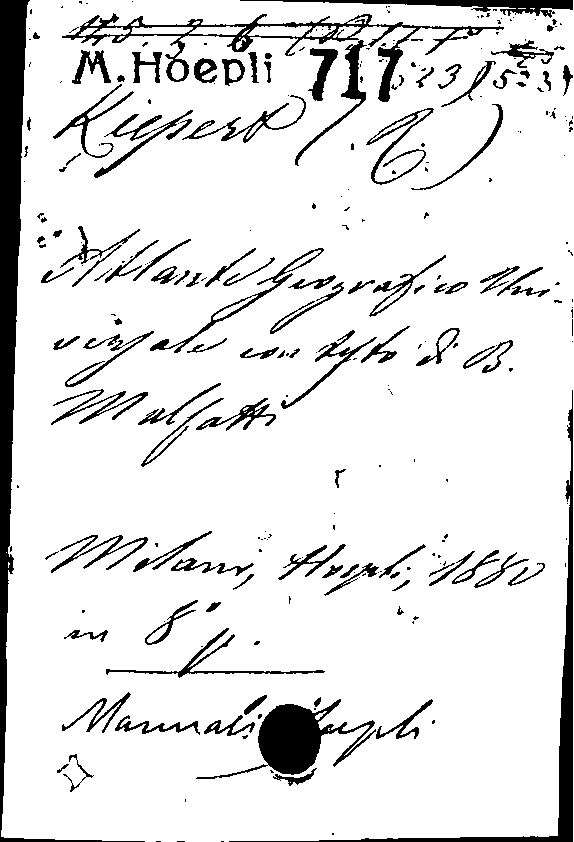 M. Hoepli 717
Kiepert (R.)
Atlante Geografico Uni-
versale con testo di B.
Malfatti
Milano, Hoepli, 1880
in 8° p.
Manuali Hoepli